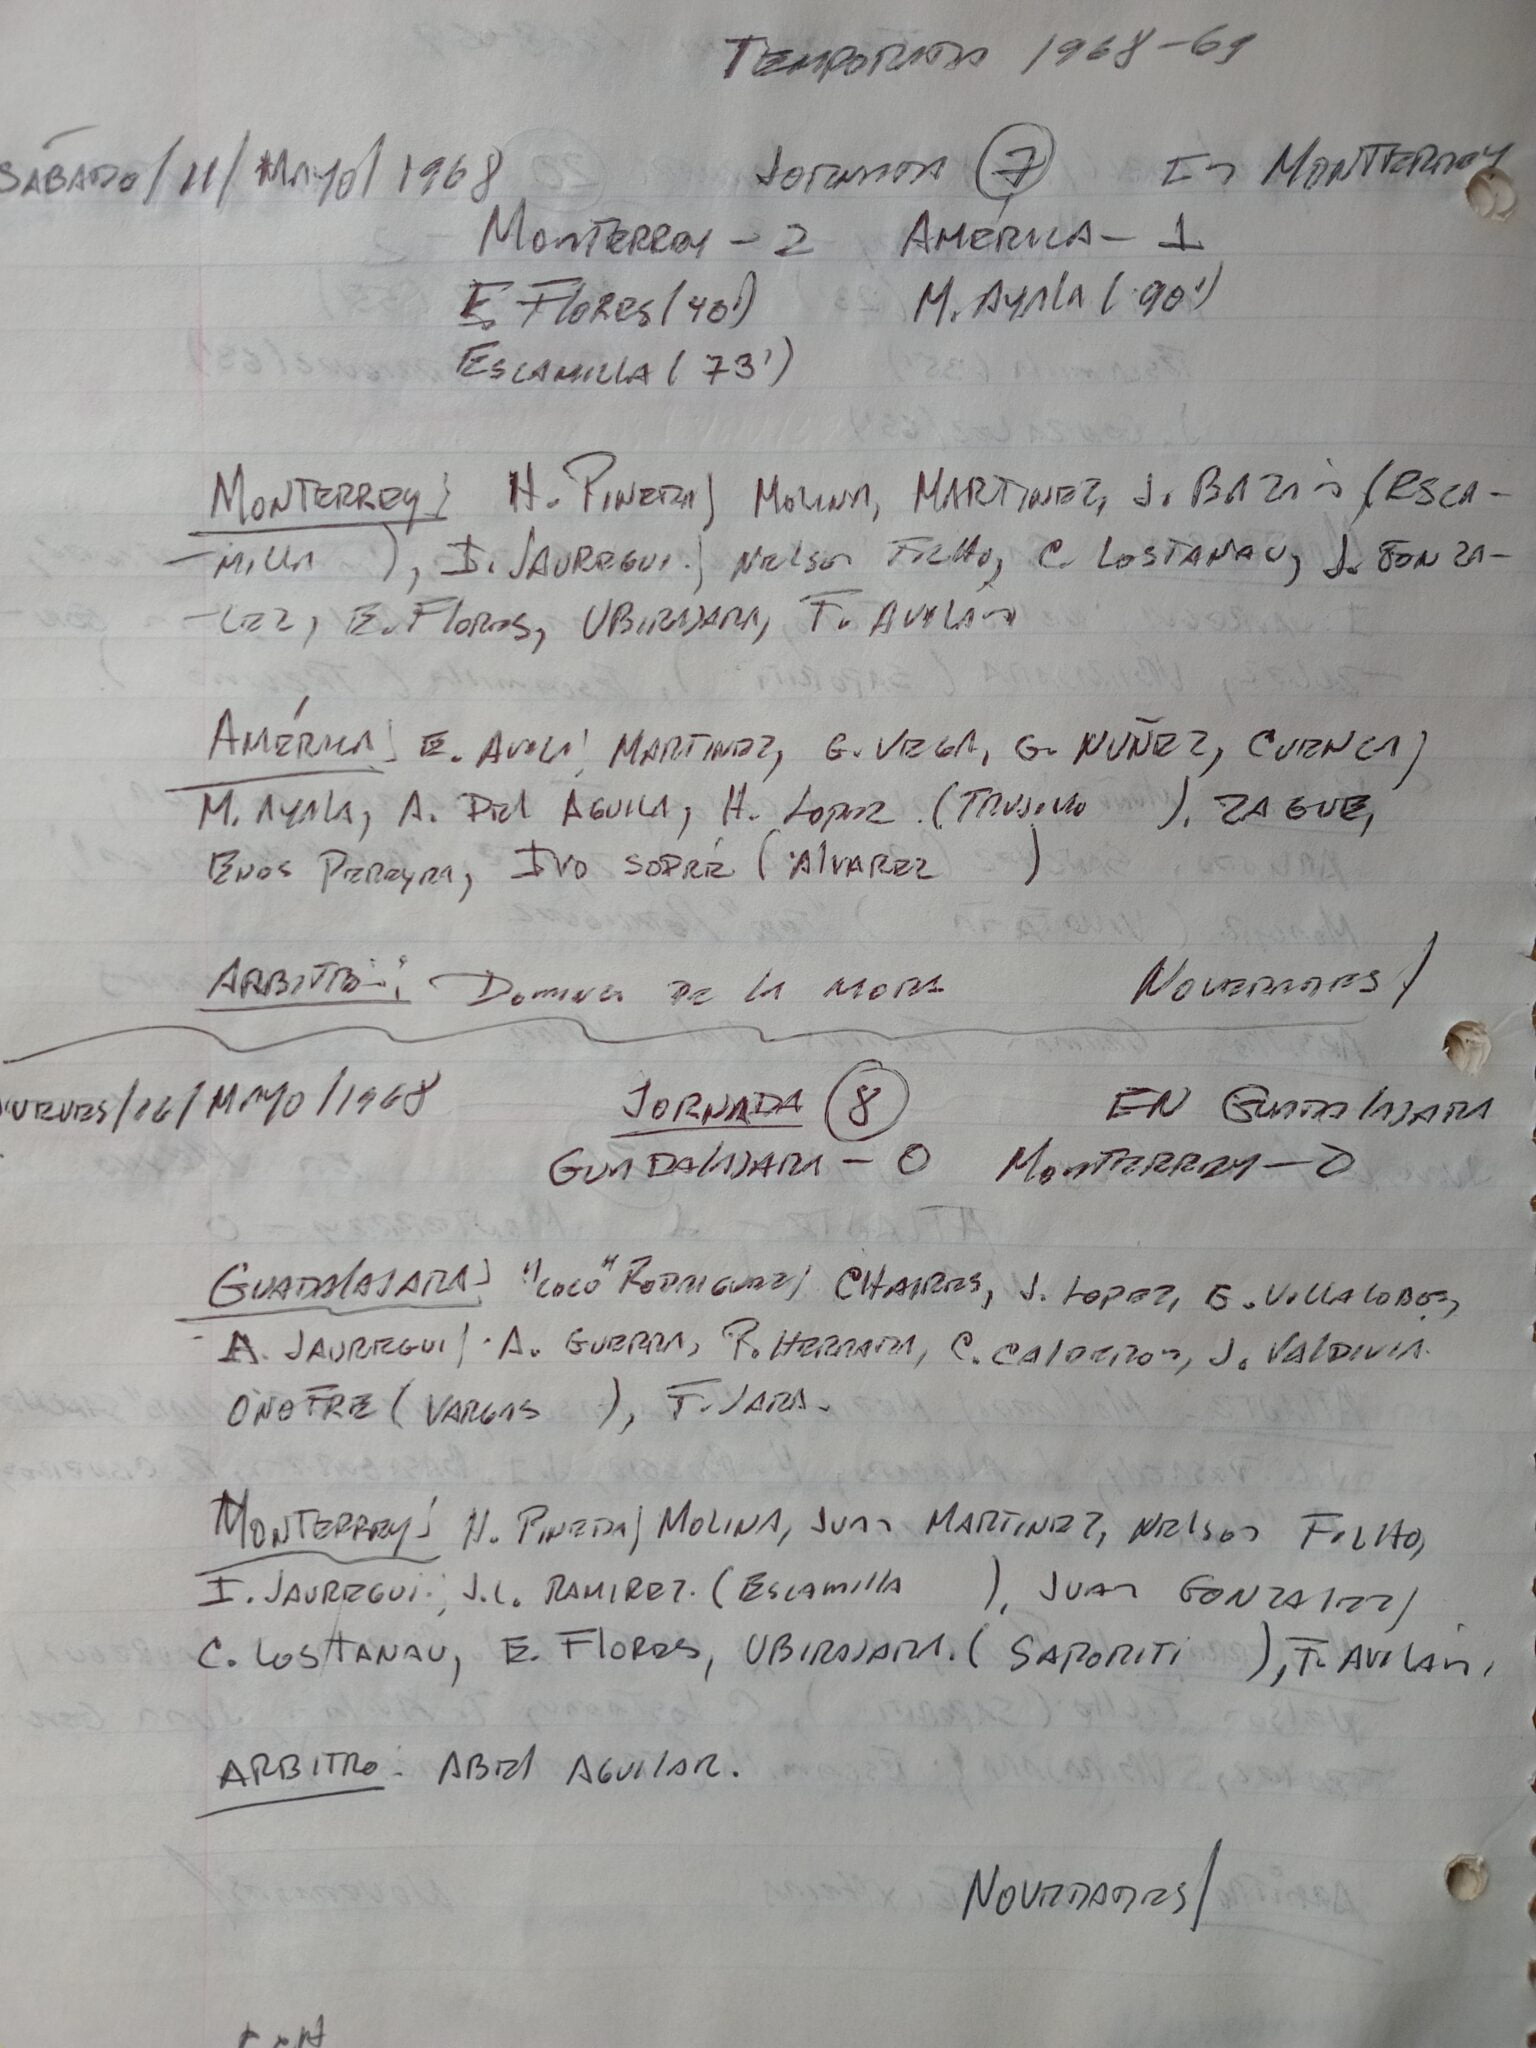 TEMPORADA 1968-69
SÁBADO/11/MAYO/1968 JORNADA 7 EN MONTERREY
MONTERREY-2 AMÉRICA-1
E. FLORES(40') M. AYALA(90')
ESCAMILLA(73')
MONTERREY; H. PINEDA; MOLINA, MARTINEZ, J. BAZAN (ESCA-
-MILLA ), I. JAUREGUI; NELSON FILHO, C. LOSTANAU, J. GONZA-
-LEZ, E. FLORES, UBIRAJARA, F. AVILÁN
AMÉRICA; E. AVILA; MARTINEZ, G. VEGA, G. NUÑEZ, CUENCA;
M. AYALA, A. DEL AGUILA, H. LOPEZ (TRUJILLO ), ZAGUE,
ENOS PEREYRA, IVO SODRÉ (ALVAREZ )
ARBITRO: DOMINGO DE LA MORA NOVEDADES/
JUEVES/16/MAYO/1968 JORNADA 8 EN GUADALAJARA
GUADALAJARA-0 MONTERREY-0
GUADALAJARA; "COCO" RODRIGUEZ; CHAIRES, J. LOPEZ, E. VILLALOBOS,
A. JAUREGUI; A. GUERRA, P. HERRADA, C. CALDERON, J. VALDIVIA.
ONOFRE (VARGAS ), F. JARA.
MONTERREY; H. PINEDA; MOLINA, JUAN MARTINEZ, NELSON FILHO,
I. JAUREGUI; J.L. RAMIREZ. (ESCAMILLA ), JUAN GONZALEZ;
C. LOSTANAU, E. FLORES, UBIRAJARA. (SAPORITI ), F. AVILÁN.
ARBITRO: ABEL AGUILAR.
NOVEDADES/